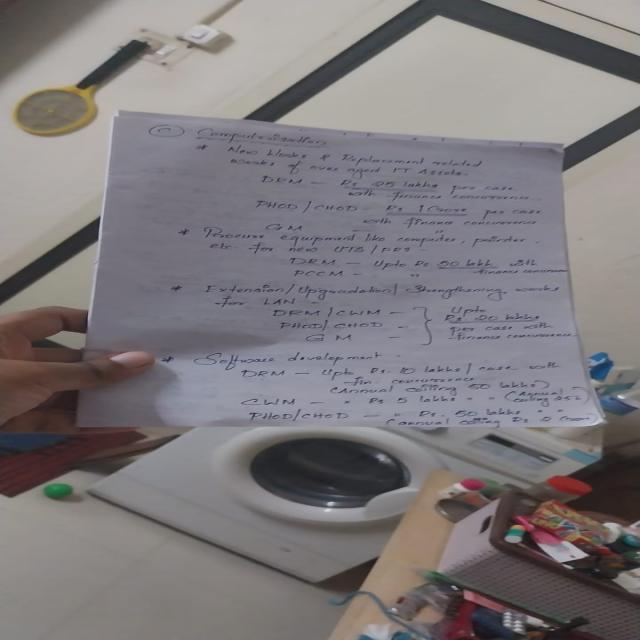 * New works & Replacement related
works of over aged IT Assets.
DRM – Rs. lakhs per case
with finance concurrence.
PHOD/CHOD – Rs 1 Crore per case
with finance concurrence
GM – "
* Procure equipment like computer, printer.
etc. for new UTS/PRS
DRM – Upto Rs 50 lakh with
PCCM – " finance
* Extension/Upgradation/Strengthening works
for LAN
DRM/CWM – Upto
PHOD/CHOD – Rs. lakhs
GM – per case with
finance concurrence
* Software development.
DRM – Upto Rs. 10 lakhs/case with
fin. concurrence
(Annual ceiling 50 lakhs)
CWM – " Rs 5 lakhs " " (Annual
PHOD/CHOD – " Rs. 50 lakhs "
(annual ceiling Rs